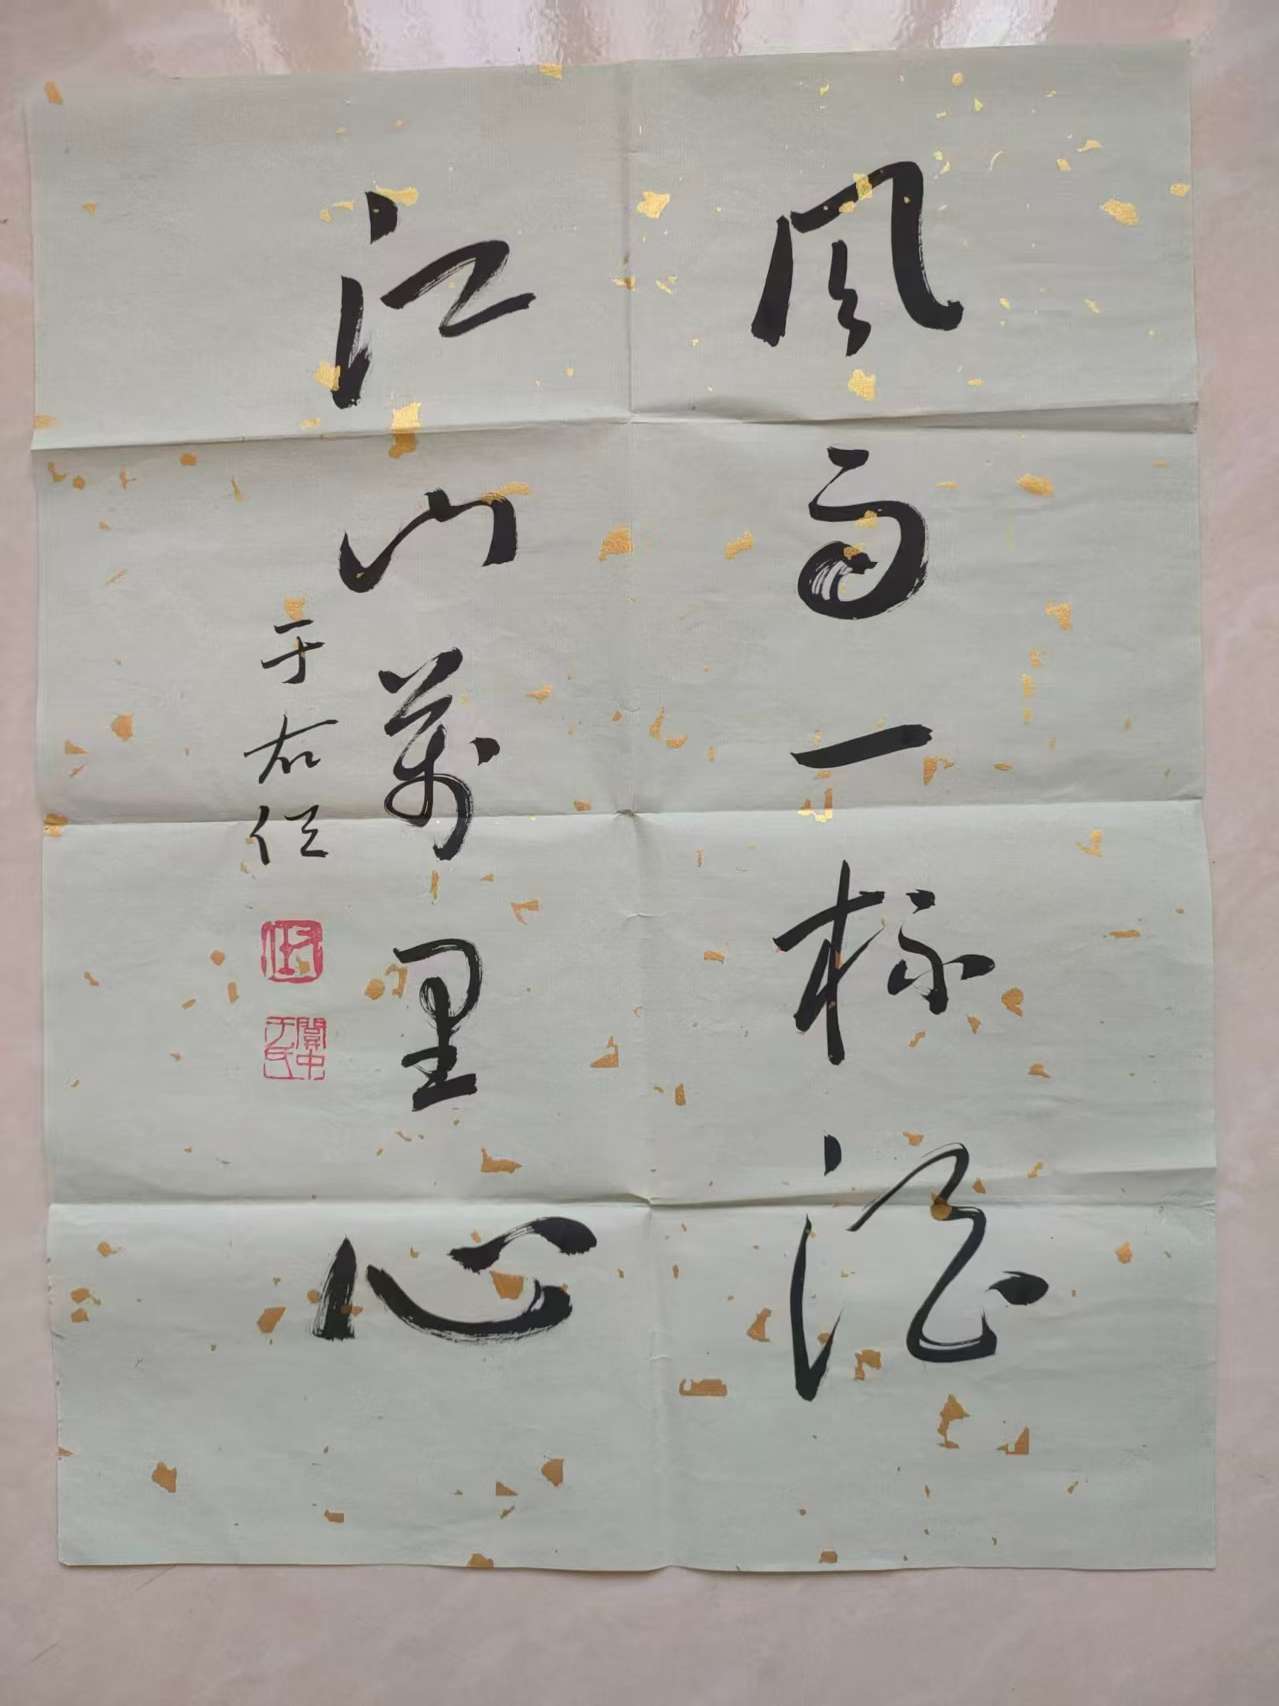 風雨一杯酒
江山萬里心
于右任
關中于氏